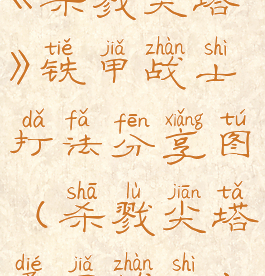 《杀戮尖塔
tiě jiǎ zhàn shì
》铁甲战士
dǎ fǎ fēn xiǎng tú
打法分享图
shā lù jiān tǎ
(杀戮尖塔
dié jiǎ zhàn shì